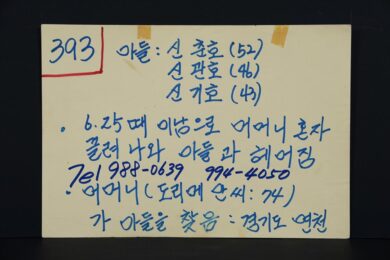 393
아들: 신 춘호 (52)
신 관호 (46)
신 기호 (43)
· 6.25때 이남으로 어머니 혼자
끌려 나와 아들과 헤어짐
Tel 988-0639 994-4050
· 어머니 (도리메 안씨: 74)
가 아들을 찾음 : 경기도 연천